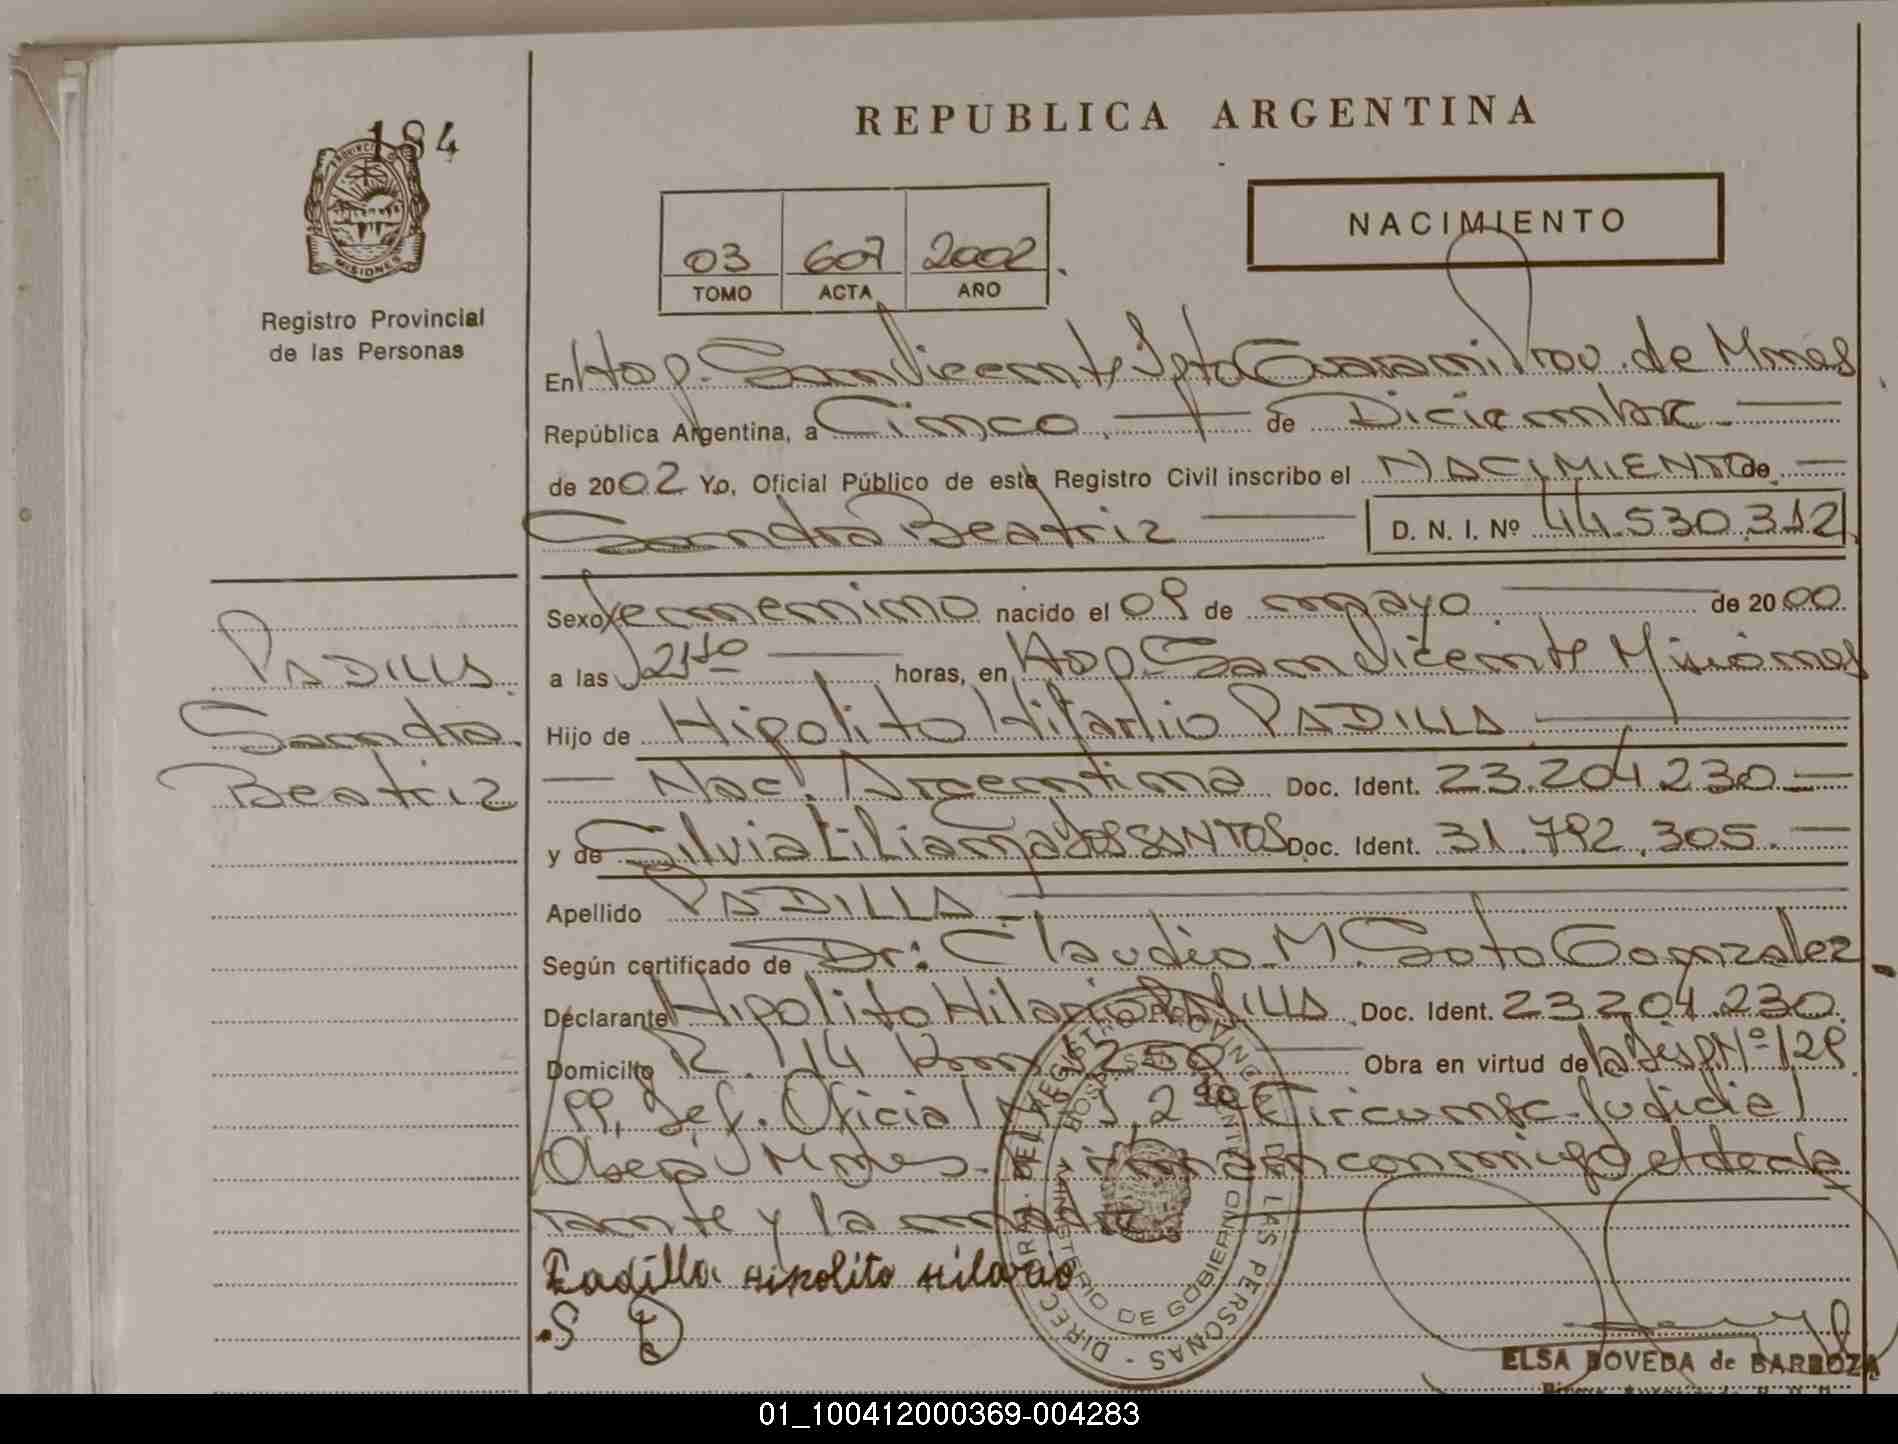 184
REPUBLICA ARGENTINA
PROVINCIA DE
MISIONES
Registro Provincial
de las Personas
03 607 2002
TOMO ACTA AÑO
NACIMIENTO
En Hosp. San Vicente Dpto Guarani Prov. de Mnes
República Argentina, a Cinco de Diciembre
de 2002 Yo, Oficial Público de este Registro Civil inscribo el NACIMIENTO de
Sandra Beatriz D. N. I. Nº 44.530.312
PADILLA
Sandra
Beatriz
Sexo femenino nacido el 09 de mayo de 2000
a las 21 10 horas, en Hosp. San Vicente Misiones
Hijo de Hipolito Hilario PADILLA
Nac. Argentina Doc. Ident. 23.204.230
y de Silvia Liliana dos SANTOS Doc. Ident. 31.792.305.
Apellido PADILLA
Según certificado de Dr: Claudio M. Soto Gonzalez
Declarante Hipolito Hilario PADILLA Doc. Ident. 23.204.230
Domicilio R. 14 Km 1250 Obra en virtud de la Disp. Nº 129
Def. Oficial Nº 1, 2da Circunsc. Judicial
Oberá Mnes. firman conmigo el decla
rante y la madre
Padilla Hipolito Hilario
S D
DIRECC. GRAL. DEL REGISTRO PROVINCIAL DE LAS PERSONAS
MINISTERIO DE GOBIERNO
ELSA BOVEDA de BARBOZA
01_100412000369-004283